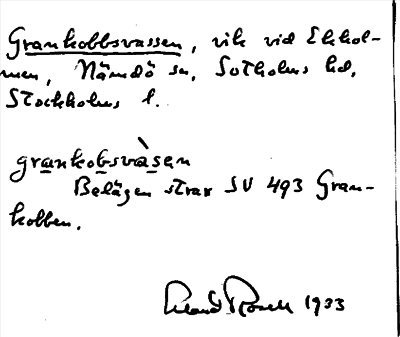 Grankobbsvassen, vik vid Ekhol-
men, Nämdö sn, Sotholms hd,
Stockholms l.
grankobsvàsen
Belägen strax SV 493 Gran-
kobben.
1933